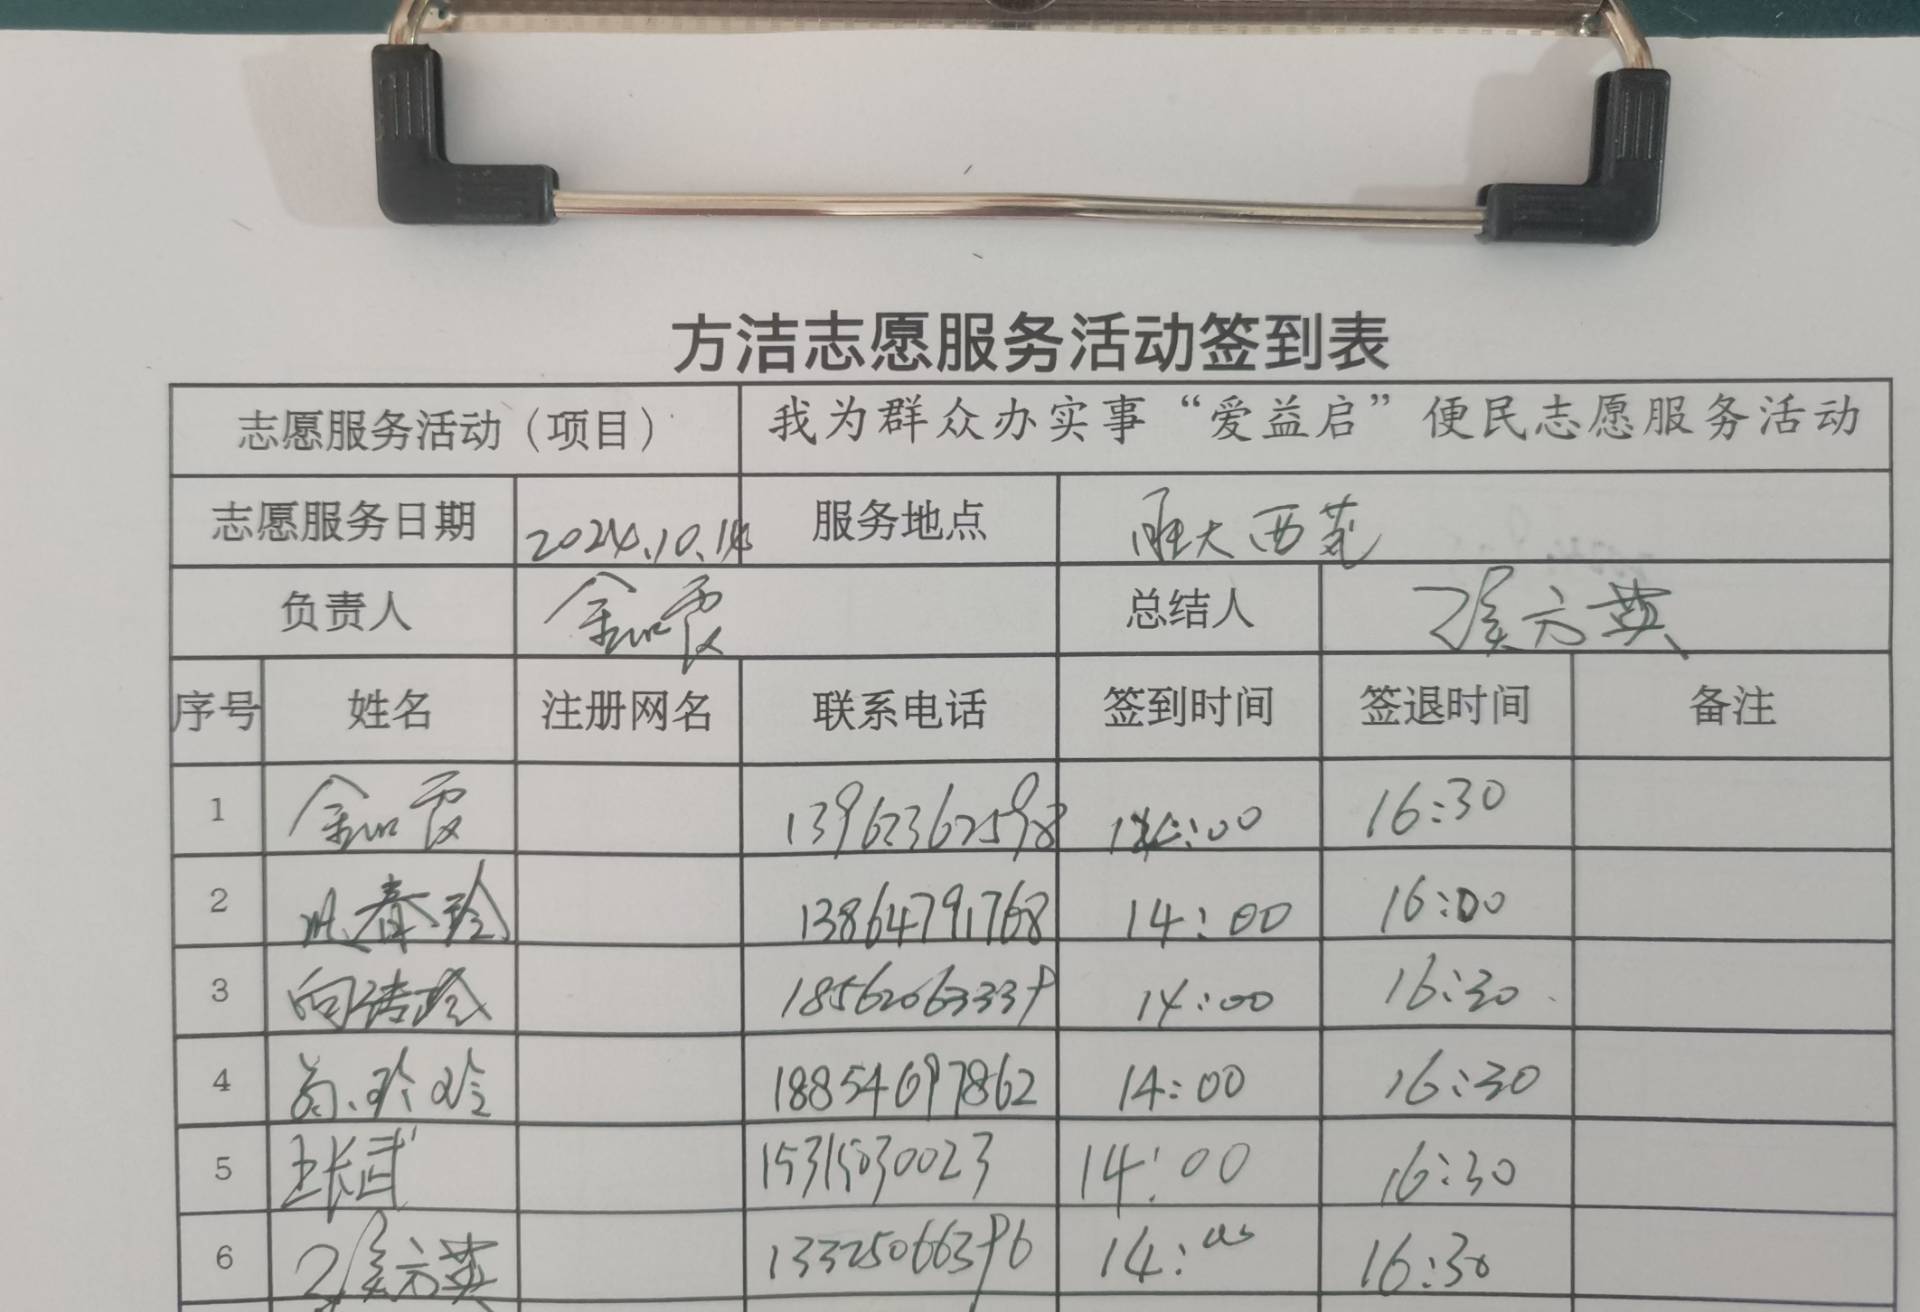 方洁志愿服务活动签到表
志愿服务活动（项目） 我为群众办实事“爱益启”便民志愿服务活动
志愿服务日期 2024.10.14 服务地点 大西苑
负责人 金虹霞 总结人 张元英
序号 姓名 注册网名 联系电话 签到时间 签退时间 备注
1 金虹霞 13963362598 14:00 16:30
2 春玲 13864791768 14:00 16:00
3 18562063339 14:00 16:30
4 玲玲 18854697862 14:00 16:30
5 王长武 15315030023 14:00 16:30
6 张元英 13325066396 14:00 16:30